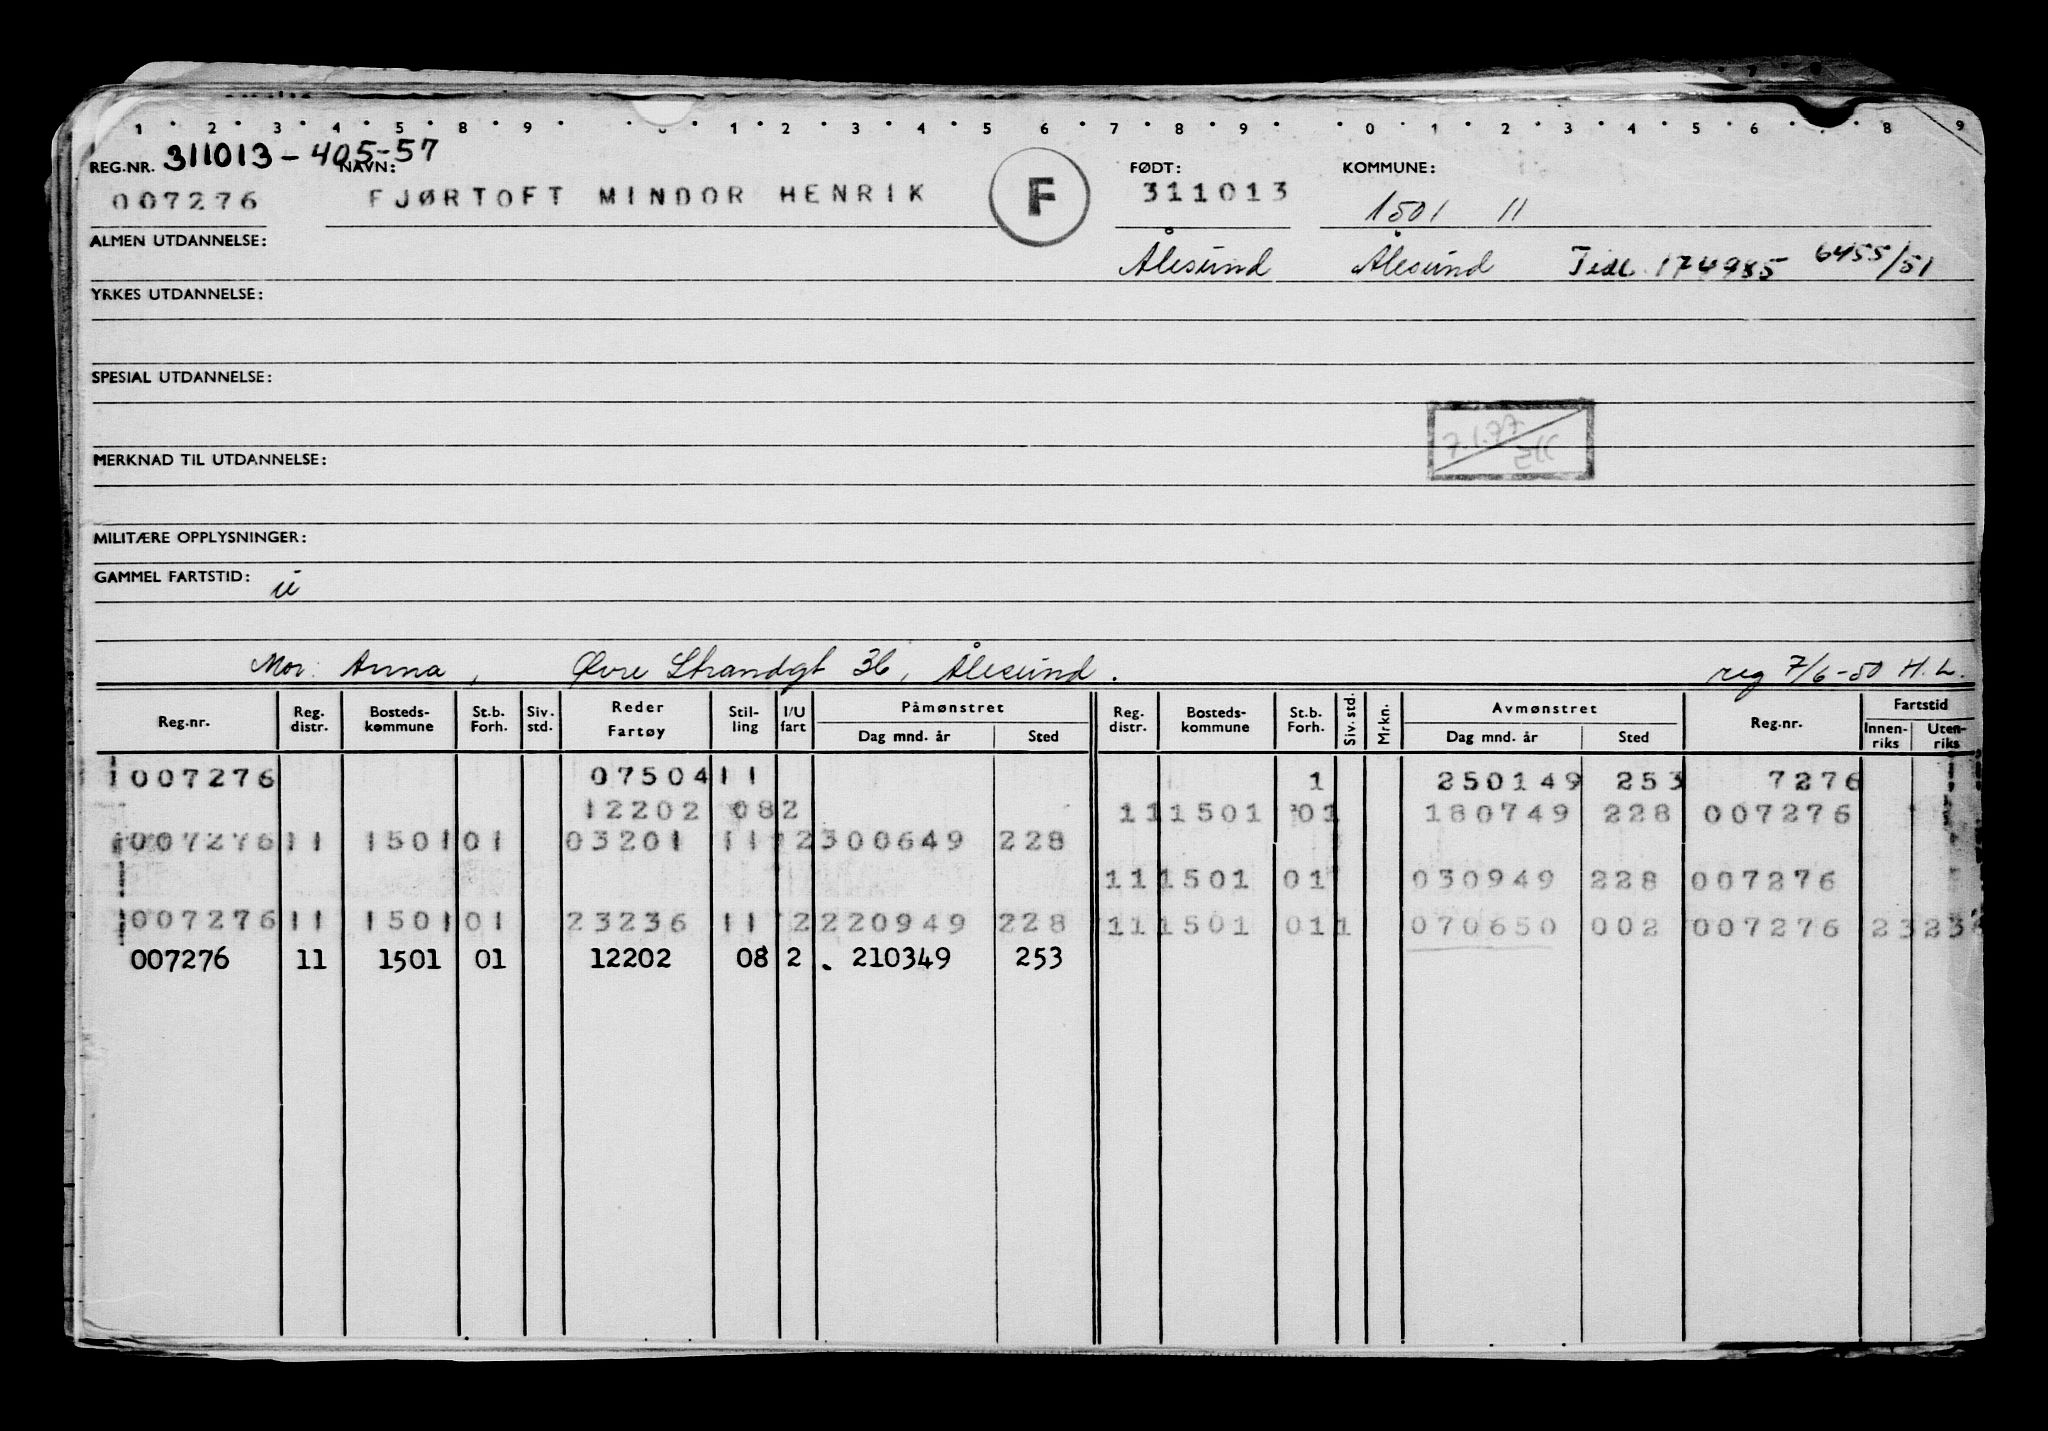 1 2 3 4 5 8 9 1 2 3 4 5 6 7 8 9 0 1 2 3 4 5 6 8 9
REG.NR. 311013-405-57 NAVN: FØDT: KOMMUNE:
007276 FJØRTOFT MINDOR HENRIK F 311013 1501 11
ALMEN UTDANNELSE: Ålesund Ålesund Tidl. 174985 6455/51
YRKES UTDANNELSE:
SPESIAL UTDANNELSE:
7.1.77
MERKNAD TIL UTDANNELSE:
MILITÆRE OPPLYSNINGER:
GAMMEL FARTSTID: u
Mor: Anna, Øvre Strandgt 36, Ålesund. reg 7/6-50 H.L.
Reg.nr. Reg. distr. Bosteds-kommune St.b. Forh. Siv. std. Reder Fartøy Stil-ling I/U fart Påmønstret Dag mnd. år Sted Reg. distr. Bosteds-kommune St.b. Forh. Siv. std. Mrkn. Avmønstret Dag mnd. år Sted Reg.nr. Fartstid Innen-riks Uten-riks
1007276 07504 11 1 250149 253 7276
12202 082 11 1501 01 180749 228 007276
1007276 11 1501 01 03201 11 2 300649 228
11 1501 01 030949 228 007276
1007276 11 1501 01 23236 11 2 220949 228 11 1501 01 1 070650 002 007276 23236
007276 11 1501 01 12202 08 2 . 210349 253